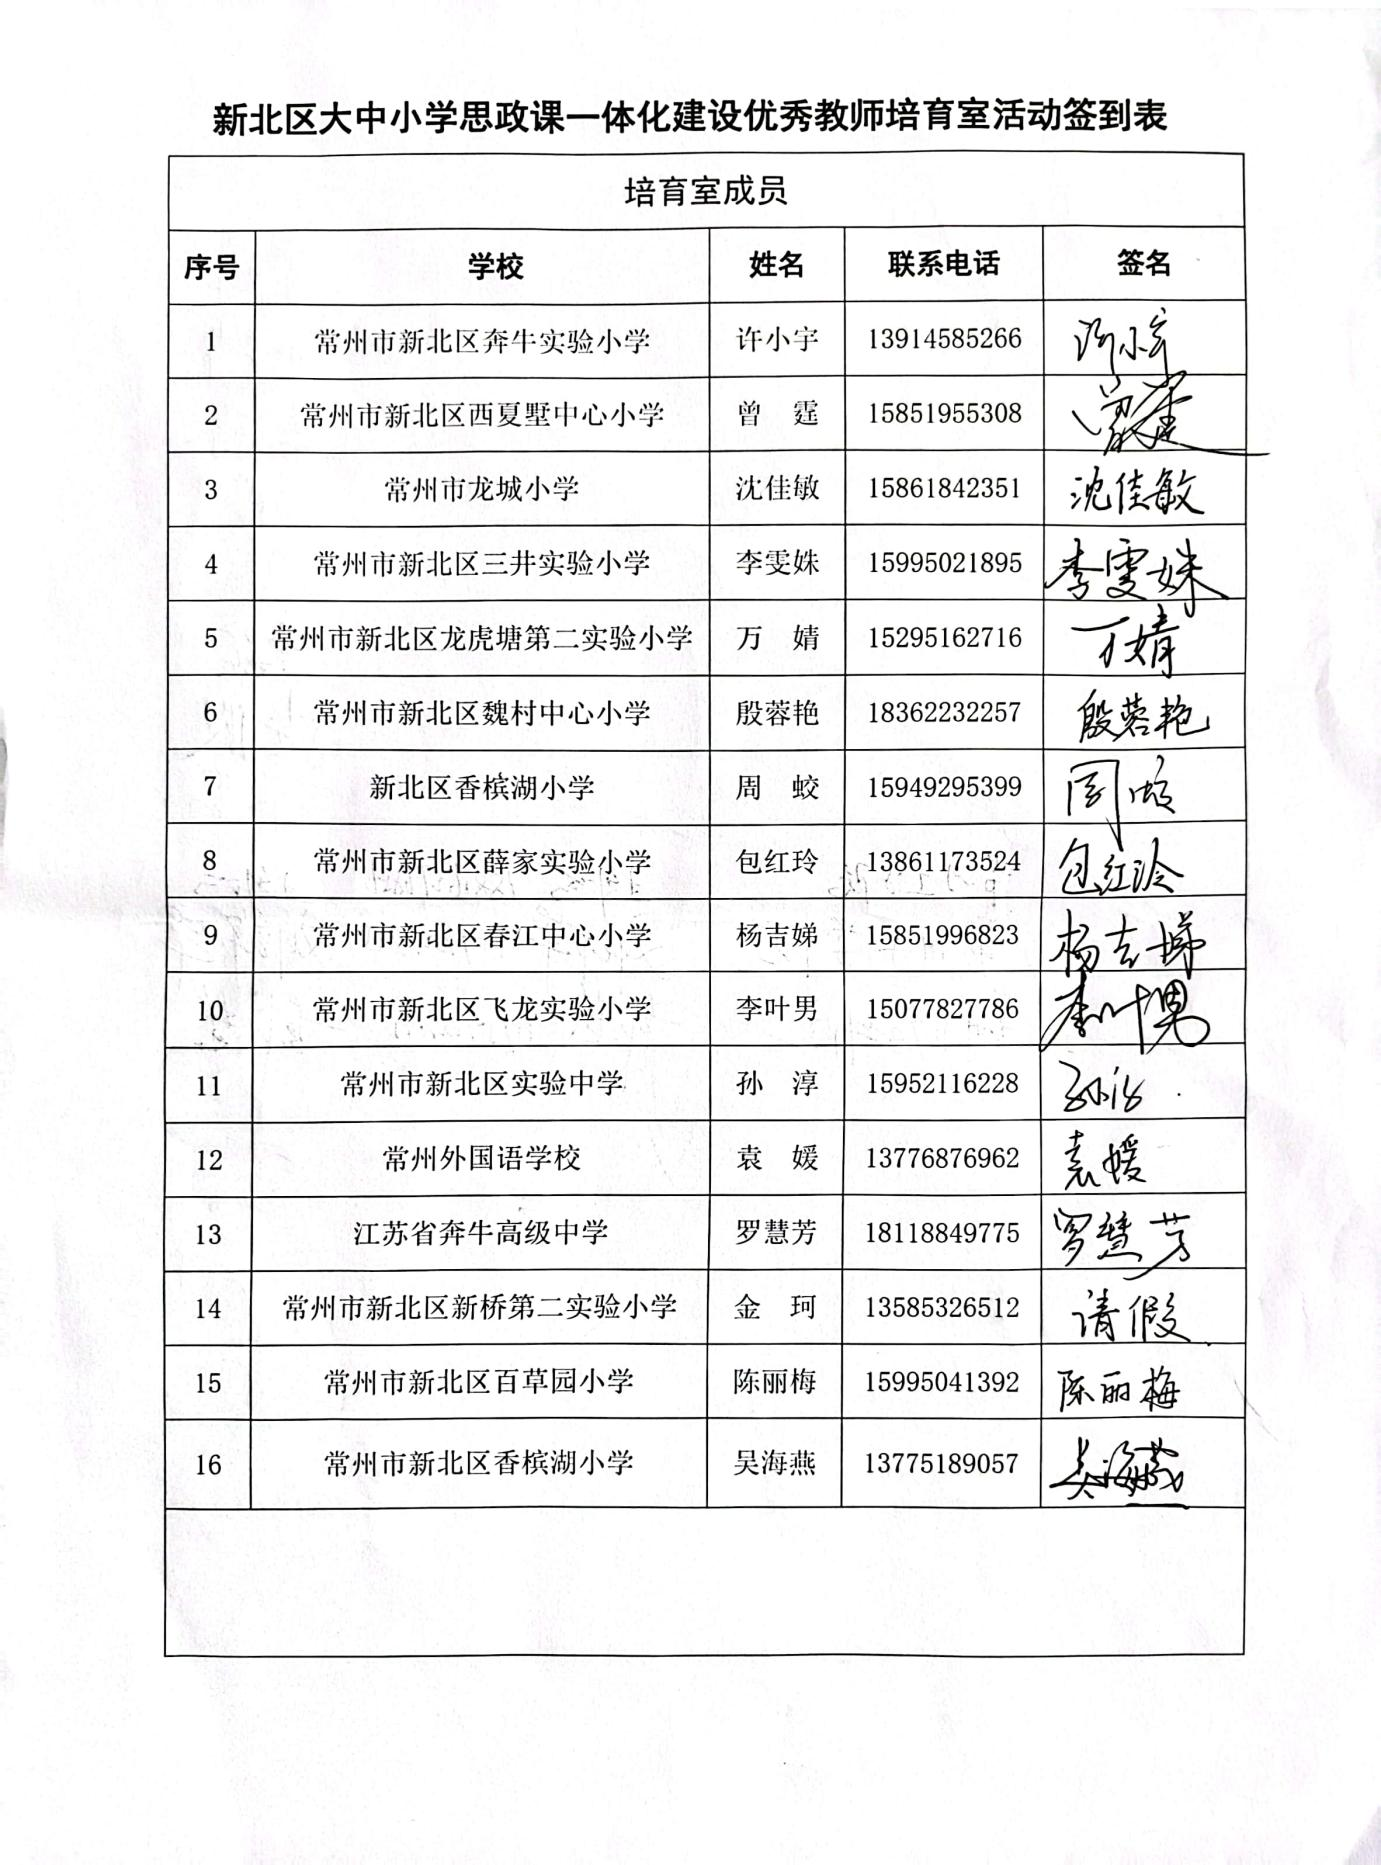 新北区大中小学思政课一体化建设优秀教师培育室活动签到表
培育室成员
序号 学校 姓名 联系电话 签名
1 常州市新北区奔牛实验小学 许小宇 13914585266 许小宇
2 常州市新北区西夏墅中心小学 曾 霆 15851955308 曾霆
3 常州市龙城小学 沈佳敏 15861842351 沈佳敏
4 常州市新北区三井实验小学 李雯姝 15995021895 李雯姝
5 常州市新北区龙虎塘第二实验小学 万 婧 15295162716 万婧
6 常州市新北区魏村中心小学 殷蓉艳 18362232257 殷蓉艳
7 新北区香槟湖小学 周 蛟 15949295399 周蛟
8 常州市新北区薛家实验小学 包红玲 13861173524 包红玲
9 常州市新北区春江中心小学 杨吉娣 15851996823 杨吉娣
10 常州市新北区飞龙实验小学 李叶男 15077827786 李叶男
11 常州市新北区实验中学 孙 淳 15952116228 孙淳
12 常州外国语学校 袁 媛 13776876962 袁媛
13 江苏省奔牛高级中学 罗慧芳 18118849775 罗慧芳
14 常州市新北区新桥第二实验小学 金 珂 13585326512 请假
15 常州市新北区百草园小学 陈丽梅 15995041392 陈丽梅
16 常州市新北区香槟湖小学 吴海燕 13775189057 吴海燕